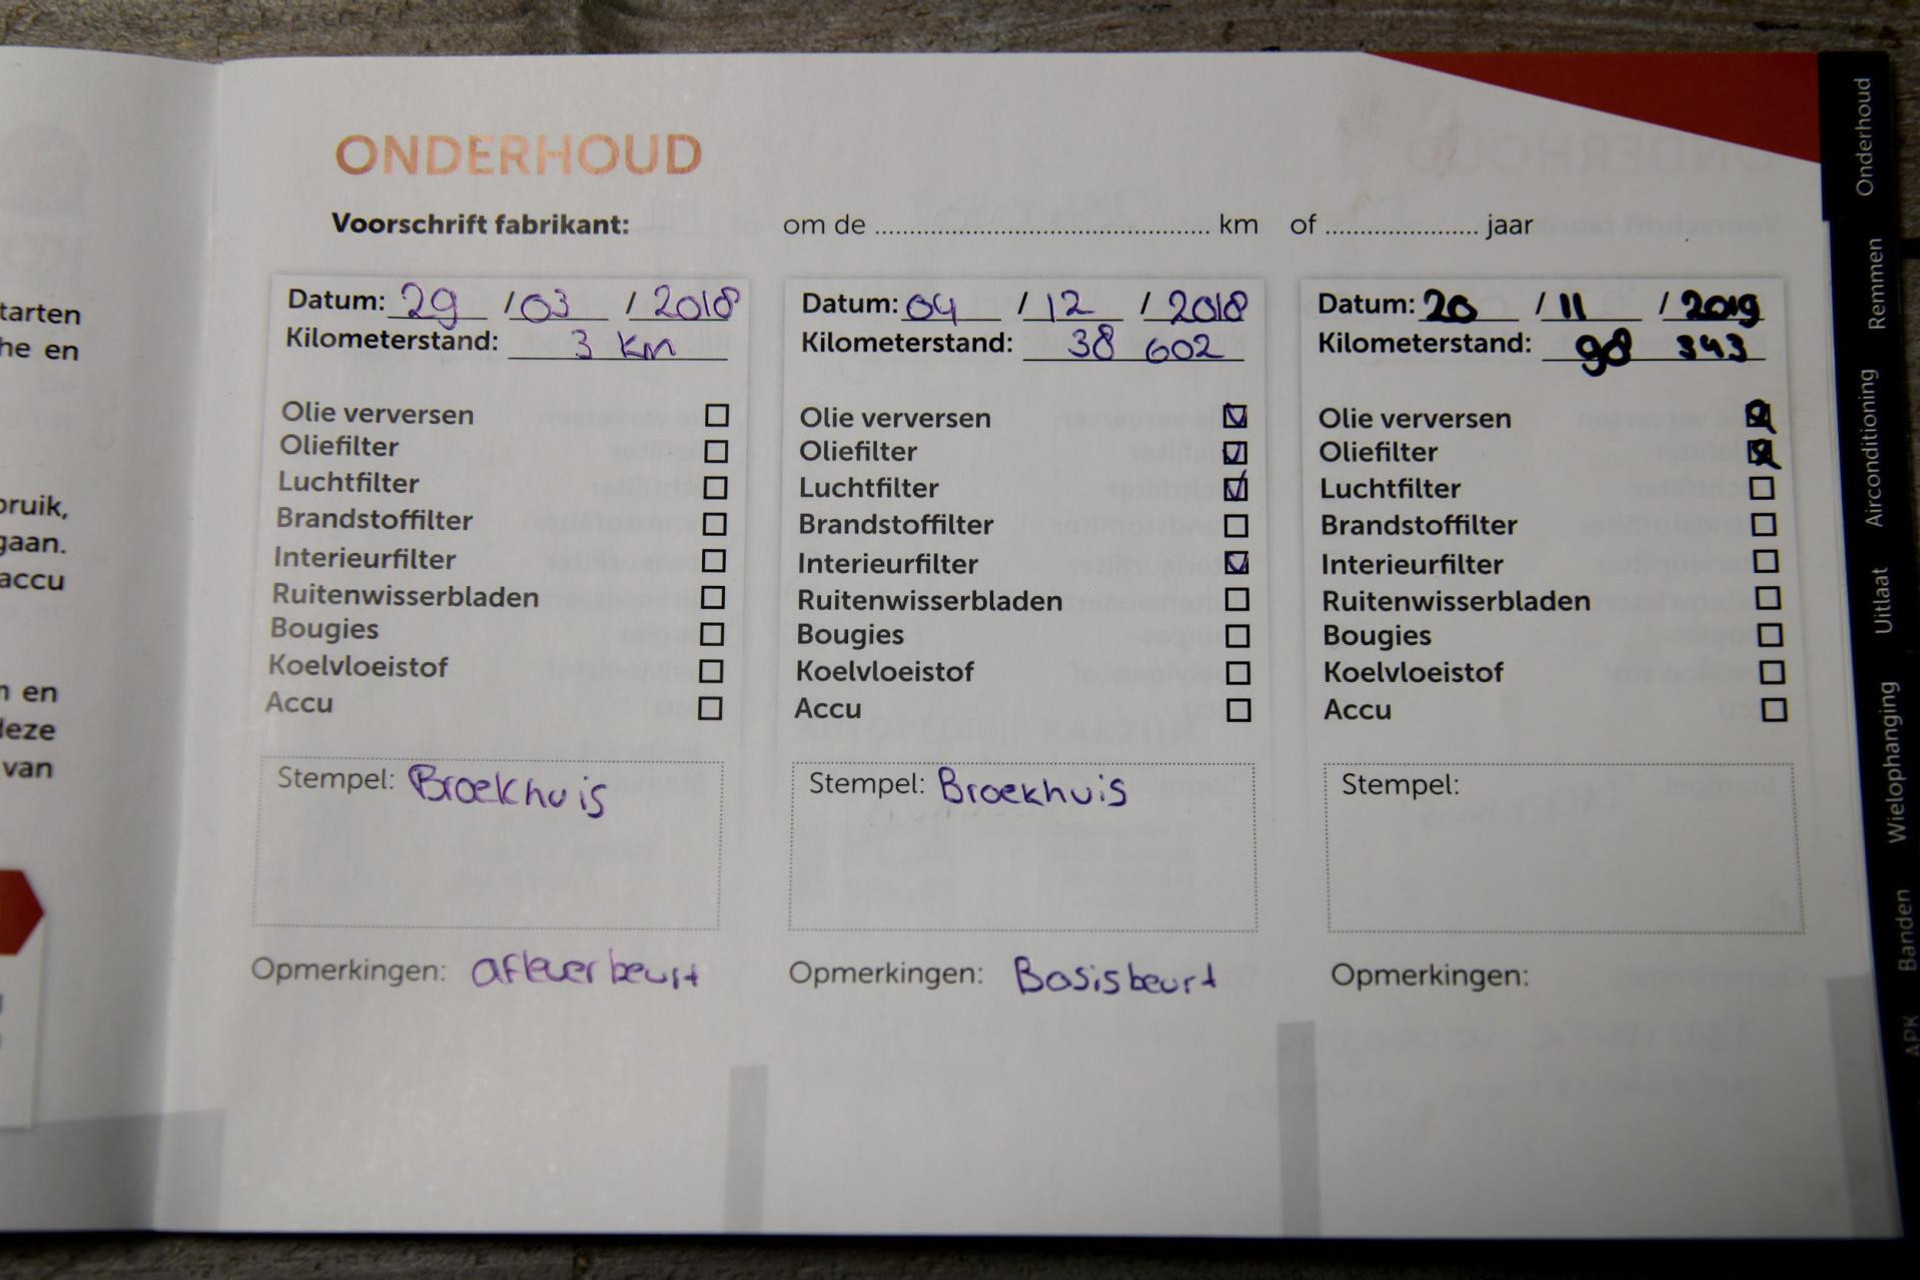 tarten
he en
bruik,
gaan.
accu
n en
deze
van
ONDERHOUD
Voorschrift fabrikant: om de ........................................ km of .................... jaar
Datum: 29 / 03 / 2018
Kilometerstand: 3 km
Olie verversen
Oliefilter
Luchtfilter
Brandstoffilter
Interieurfilter
Ruitenwisserbladen
Bougies
Koelvloeistof
Accu
Stempel: Broekhuis
Opmerkingen: afleverbeurt
Datum: 04 / 12 / 2018
Kilometerstand: 38 602
Olie verversen
Oliefilter
Luchtfilter
Brandstoffilter
Interieurfilter
Ruitenwisserbladen
Bougies
Koelvloeistof
Accu
Stempel: Broekhuis
Opmerkingen: Basisbeurt
Datum: 20 / 11 / 2019
Kilometerstand: 98 343
Olie verversen
Oliefilter
Luchtfilter
Brandstoffilter
Interieurfilter
Ruitenwisserbladen
Bougies
Koelvloeistof
Accu
Stempel:
Opmerkingen:
Onderhoud
Remmen
Airconditioning
Uitlaat
Wielophanging
Banden
APK